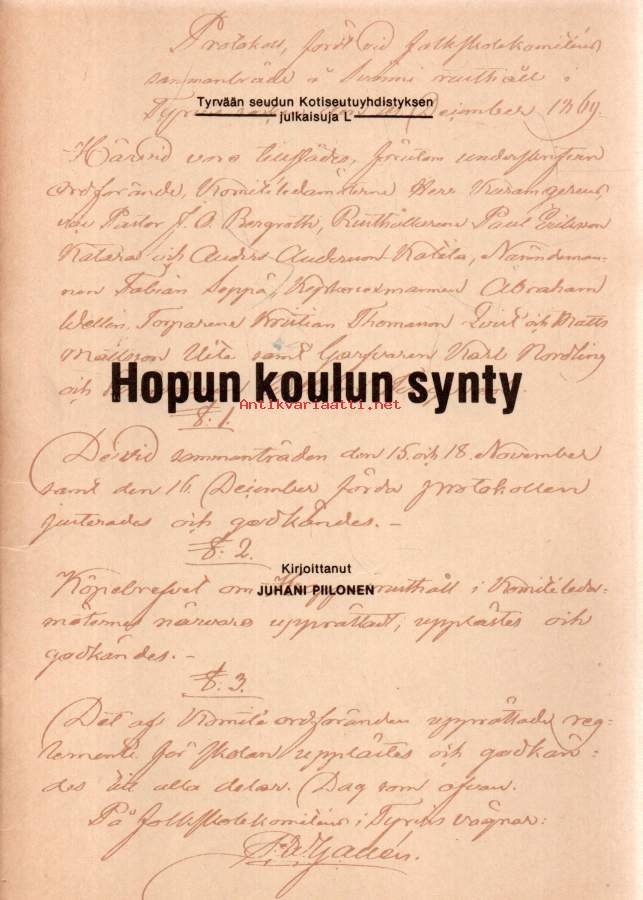 Protokoll, fördt vid folkskolekomiténs
sammanträde å Svenni rusthåll i
Tyrvään seudun Kotiseutuyhdistyksen
julkaisuja L
December 1869.
Härvid voro tillstädes, förutom undertecknan
ordförande, Komitéledamöterne Herr
Pastor J. A. Bergroth, Rusthållarene Paul Eriksson
Katara och Anders Andersson Katila, Nämndeman-
nen Fabian Soppa, Kyrkovärden Abraham
Wellin, Torparene Kristian Thomasson och Matts
Mattsson Uita samt Garfvaren Karl Nordling
och
Hopun koulun synty
Antikvariaatti.net
§. 1.
De vid sammanträden den 15. och 18. November
samt den 16. December förda protokollen
justerades och godkändes. -
§. 2.
Kirjoittanut
Köpebrefvet om rusthåll i Komitéleda-
JUHANI PIILONEN
möternas närvaro upprättadt, upplästes och
godkändes. -
§. 3.
Det af Komité ordföranden upprättade reg-
lemente för skolan upplästes och godkän-
des till alla delar. Dag som ofvan.
På folkskolekomiténs i Tyrvis vägnar: